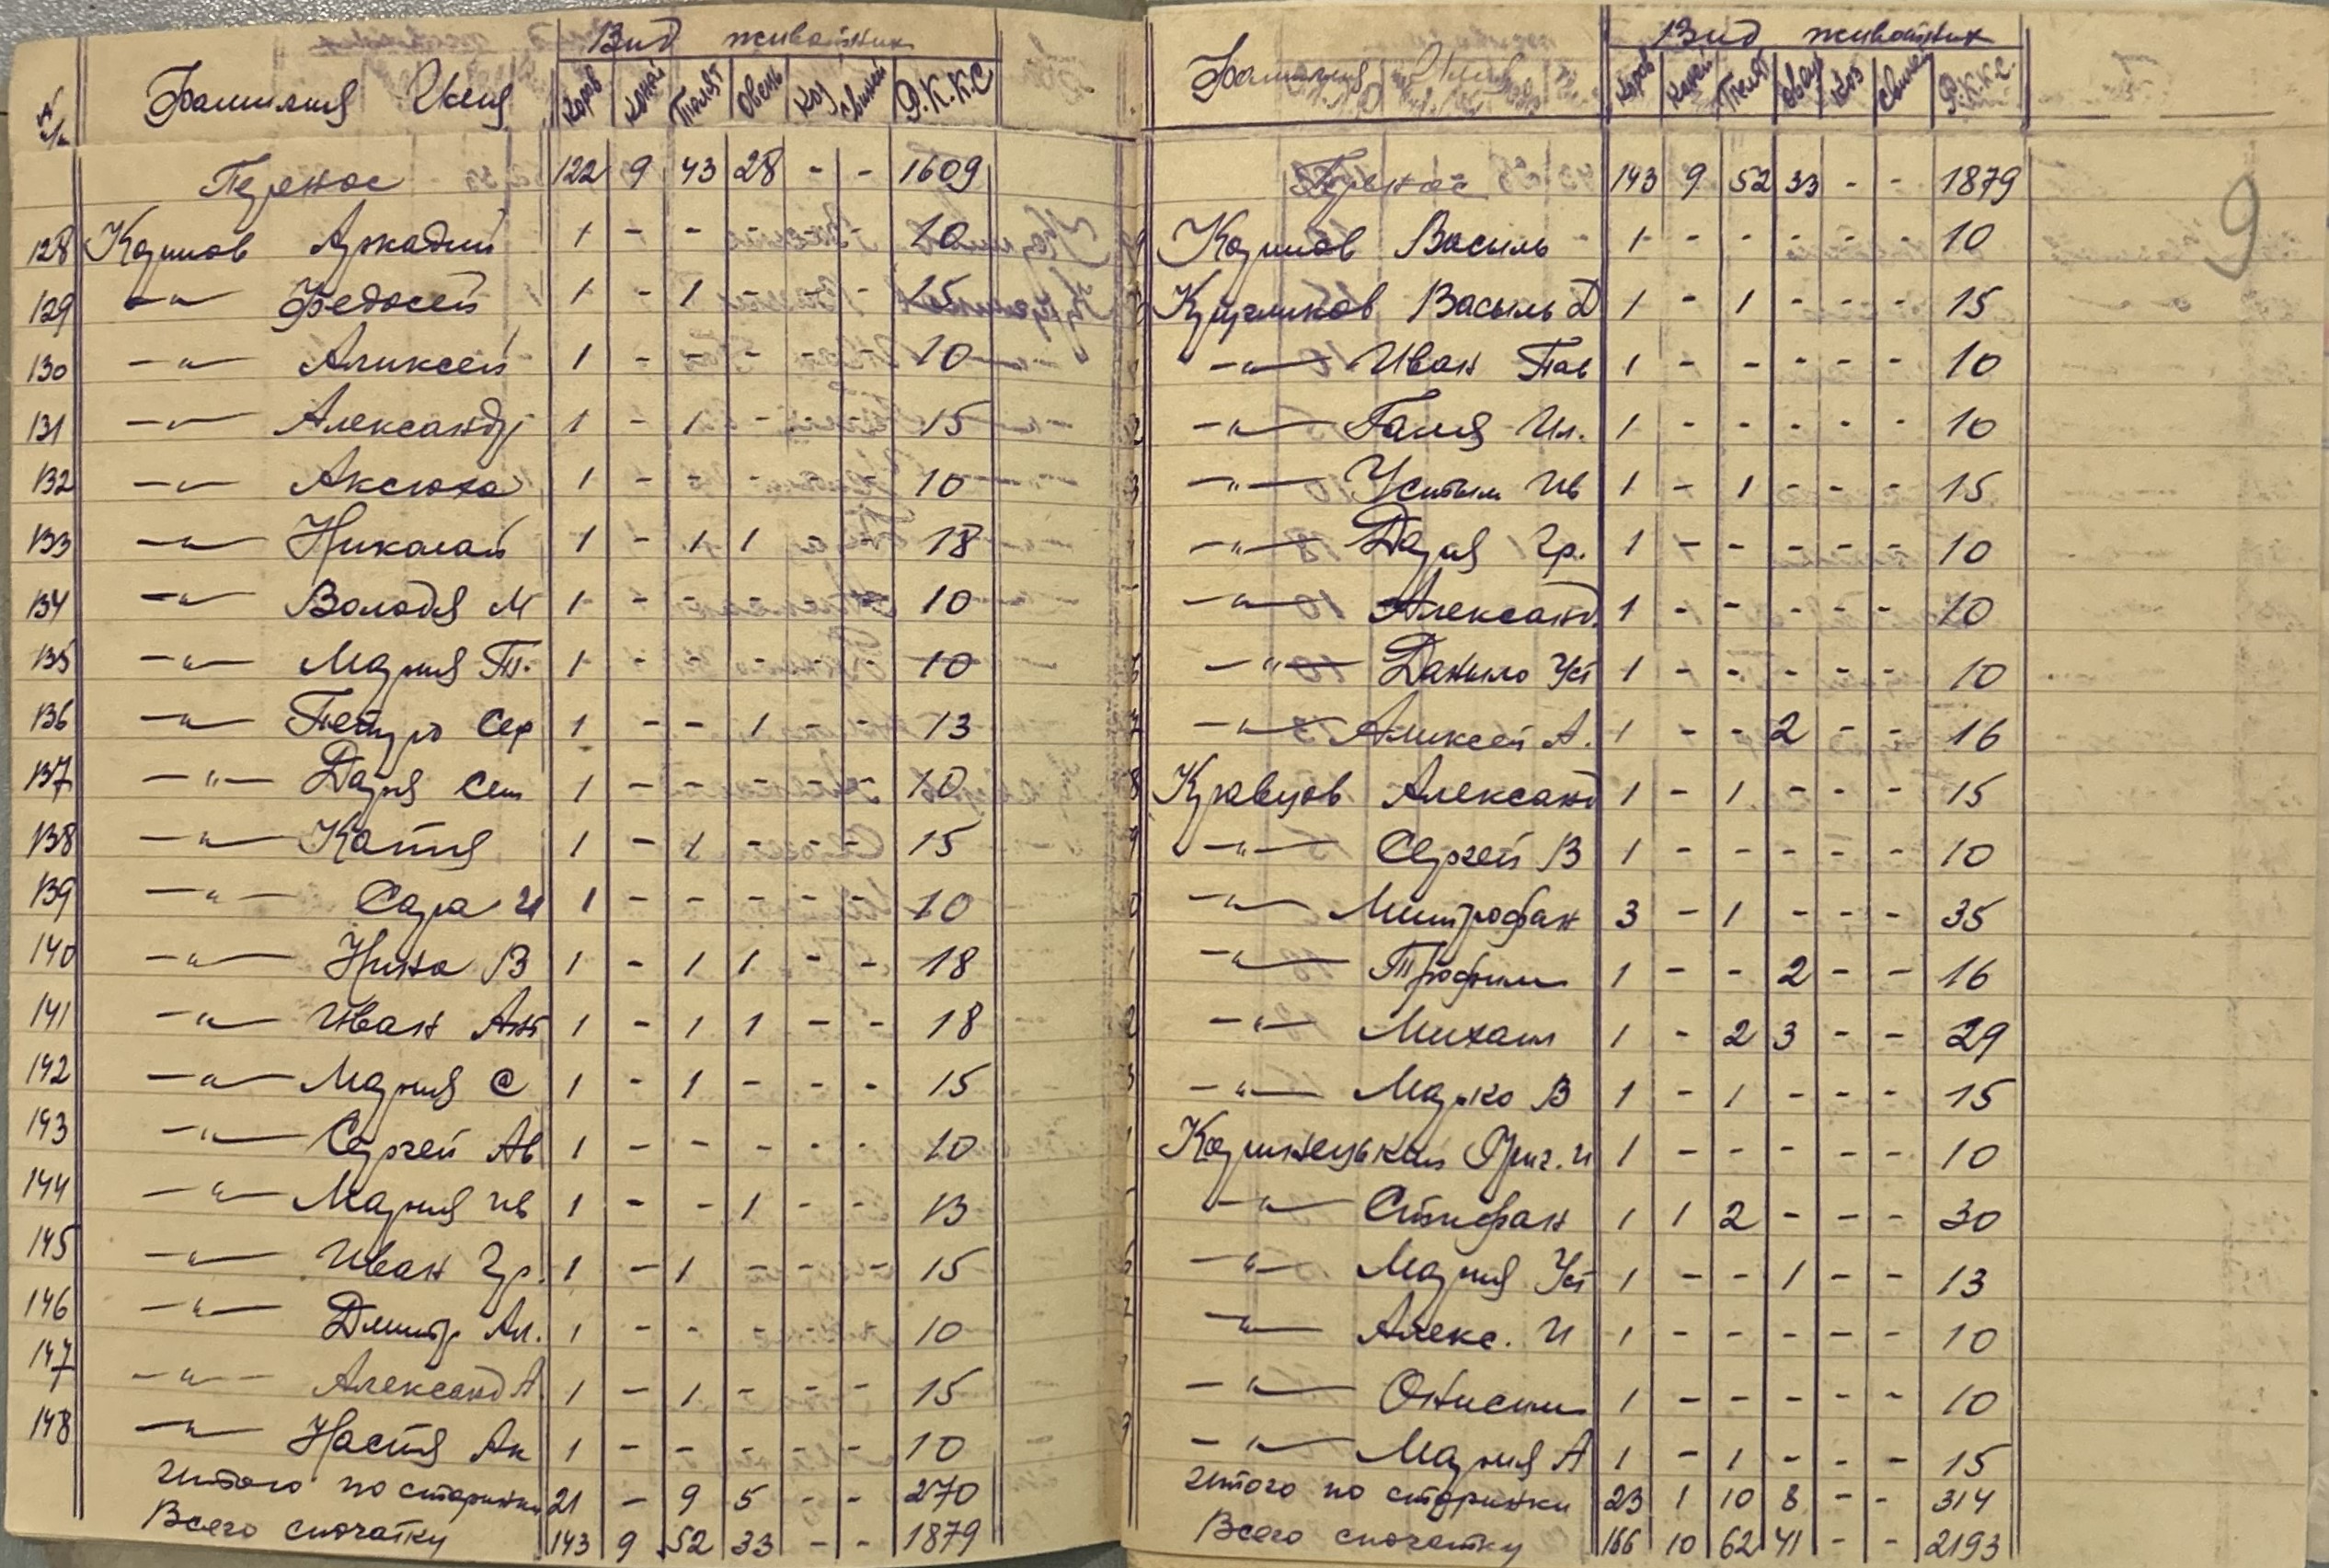 Вид животных
№ п/п Фамилия Имя Коров Коней Телят Овець Коз Свиней Р.К.К.С
Перенос 122 9 43 28 - - 1609
128 Коримов Аркадий 1 - - - - - 10
129 -"- Федосей 1 - 1 - - - 15
130 -"- Аликсей 1 - - - - - 10
131 -"- Александр 1 - 1 - - - 15
132 -"- Аксюха 1 - - - - - 10
133 -"- Николай 1 - 1 1 - - 18
134 -"- Володя М 1 - - - - - 10
135 -"- Мария Т. 1 - - - - - 10
136 -"- Петро Сер 1 - - 1 - - 13
137 -"- Дария Сем 1 - - - - - 10
138 -"- Катя 1 - 1 - - - 15
139 -"- Сара И 1 - - - - - 10
140 -"- Нина В 1 - 1 1 - - 18
141 -"- Иван Ант 1 - 1 1 - - 18
142 -"- Мария С 1 - 1 - - - 15
143 -"- Сергей Ав 1 - - - - - 10
144 -"- Мария Ив 1 - - 1 - - 13
145 -"- Иван Гр. 1 - 1 - - - 15
146 -"- Дмитр Ал. 1 - - - - - 10
147 -"- Александ А. 1 - 1 - - - 15
148 -"- Настя Ак 1 - - - - - 10
Итого по сторинки 21 - 9 5 - - 270
Всего спочатку 143 9 52 33 - - 1879
Вид животных
Фамилия Имя Коров Коней Телят Овець Коз Свиней Р.К.К.С.
9
Перенос 143 9 52 33 - - 1879
Коримов Василь 1 - - - - - 10
Василь Д 1 - 1 - - - 15
-"- Иван Пав 1 - - - - - 10
-"- Галя Ил. 1 - - - - - 10
-"- Устым Ив 1 - 1 - - - 15
-"- Дария Гр. 1 - - - - - 10
-"- Александ. 1 - - - - - 10
-"- Даныло Уст 1 - - - - - 10
-"- Аликсей А. 1 - - 2 - - 16
Кравцов Александ 1 - 1 - - - 15
-"- Сергей В 1 - - - - - 10
-"- Митрофан 3 - 1 - - - 35
-"- Трофим 1 - - 2 - - 16
-"- Михаил 1 - 2 3 - - 29
-"- Марко В 1 - 1 - - - 15
Коринецький Григ. И 1 - - - - - 10
-"- Стифан 1 1 2 - - - 30
-"- Мария Уст 1 - - 1 - - 13
-"- Алекс. И 1 - - - - - 10
-"- Онисим 1 - - - - - 10
-"- Мария А 1 - 1 - - - 15
Итого по сторинки 23 1 10 8 - - 314
Всего спочатку 166 10 62 41 - - 2193